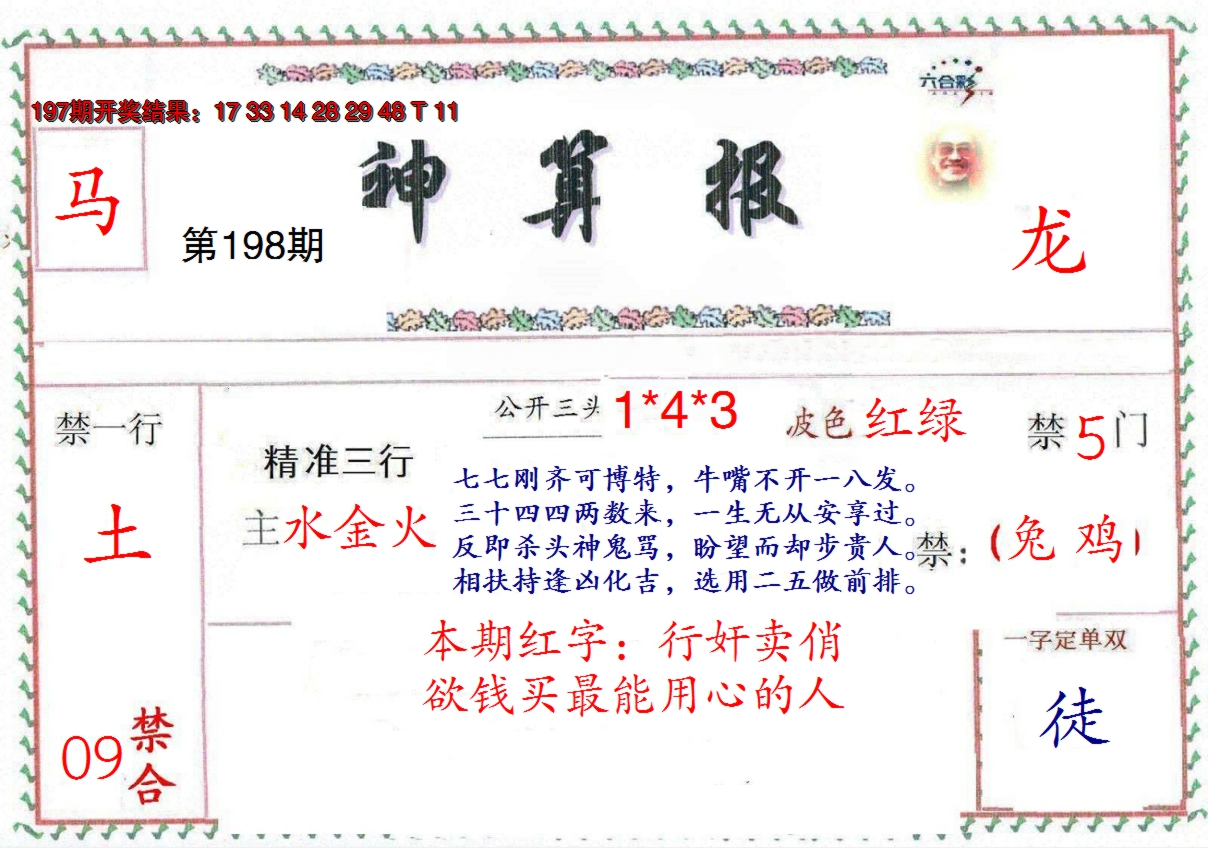 六合彩
197期开奖结果：17 33 14 28 29 48 T 11
马
神算报
第198期
龙
禁一行
土
09
禁合
精准三行
主水金火
公开三头 1*4*3
波色 红绿
禁5门
七七刚齐可博特，牛嘴不开一八发。
三十四四两数来，一生无从安享过。
反即杀头神鬼骂，盼望而却步贵人。
相扶持逢凶化吉，选用二五做前排。
禁：（兔 鸡）
本期红字：行奸卖俏
欲钱买最能用心的人
一字定单双
徒